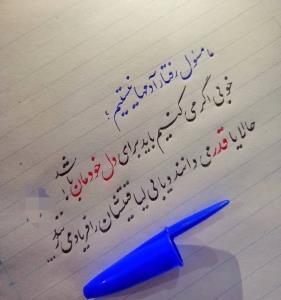 ما مسئول رفتار آدمها نیستیم ؛
خوبی اگر می کنیم باید برای دل خودمان باشد
حالا یا قدر می دانند و یا بی لیاقتیشان را فریاد می زنند...